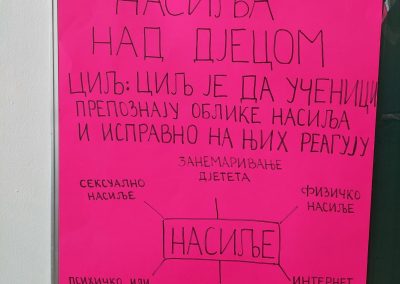 НАСИЉА
НАД ДЈЕЦОМ
ЦИЉ: ЦИЉ ЈЕ ДА УЧЕНИЦИ
ПРЕПОЗНАЈУ ОБЛИКЕ НАСИЉА
И ИСПРАВНО НА ЊИХ РЕАГУЈУ
ЗАНЕМАРИВАЊЕ
ДЈЕТЕТА
СЕКСУАЛНО
НАСИЉЕ
ФИЗИЧКО
НАСИЉЕ
НАСИЉЕ
ПСИХИЧКО ИЛИ
ИНТЕРНЕТ